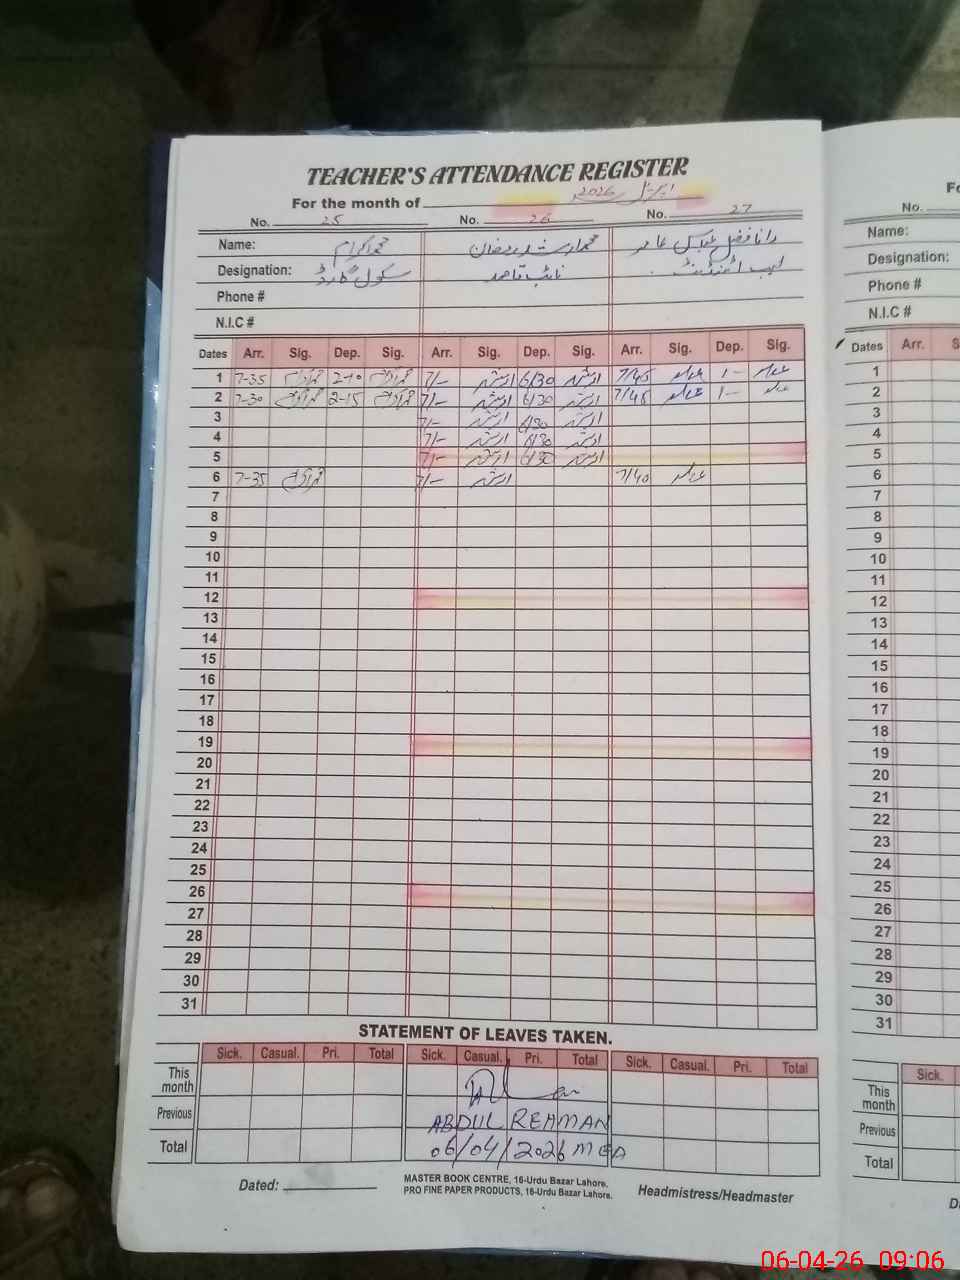 TEACHER'S ATTENDANCE REGISTER
For the month of اپریل 2026
No. 25 No. 26 No. 27
Name: محمد اکرم محمد ارشد رمضان رانا فضل عباس
Designation: سکول گارڈ نائب قاصد لیب اٹنڈنٹ
Phone #
N.I.C #
Dates Arr. Sig. Dep. Sig. Arr. Sig. Dep. Sig. Arr. Sig. Dep. Sig.
1 7-35 محمد اکرم 2-10 محمد اکرم 7/- ارشد 6/30 ارشد 7/45 عباس 1- عباس
2 7-30 محمد اکرم 2-15 محمد اکرم 7/- ارشد 6/30 ارشد 7/45 عباس 1- عباس
3 7/- ارشد 6/30 ارشد
4 7/- ارشد 6/30 ارشد
5 7/- ارشد 6/30 ارشد
6 7-35 محمد اکرم 7/- ارشد 7/40 عباس
7
8
9
10
11
12
13
14
15
16
17
18
19
20
21
22
23
24
25
26
27
28
29
30
31
STATEMENT OF LEAVES TAKEN.
Sick. Casual. Pri. Total Sick. Casual. Pri. Total Sick. Casual. Pri. Total
This month
Previous ABDUL REHMAN
Total 06/04/2026 MEA
Dated:
MASTER BOOK CENTRE, 16-Urdu Bazar Lahore.
PRO FINE PAPER PRODUCTS, 16-Urdu Bazar Lahore.
Headmistress/Headmaster
No.
Name:
Designation:
Phone #
N.I.C #
Dates Arr.
1
2
3
4
5
6
7
8
9
10
11
12
13
14
15
16
17
18
19
20
21
22
23
24
25
26
27
28
29
30
31
Sick.
This month
Previous
Total
06-04-26 09:06